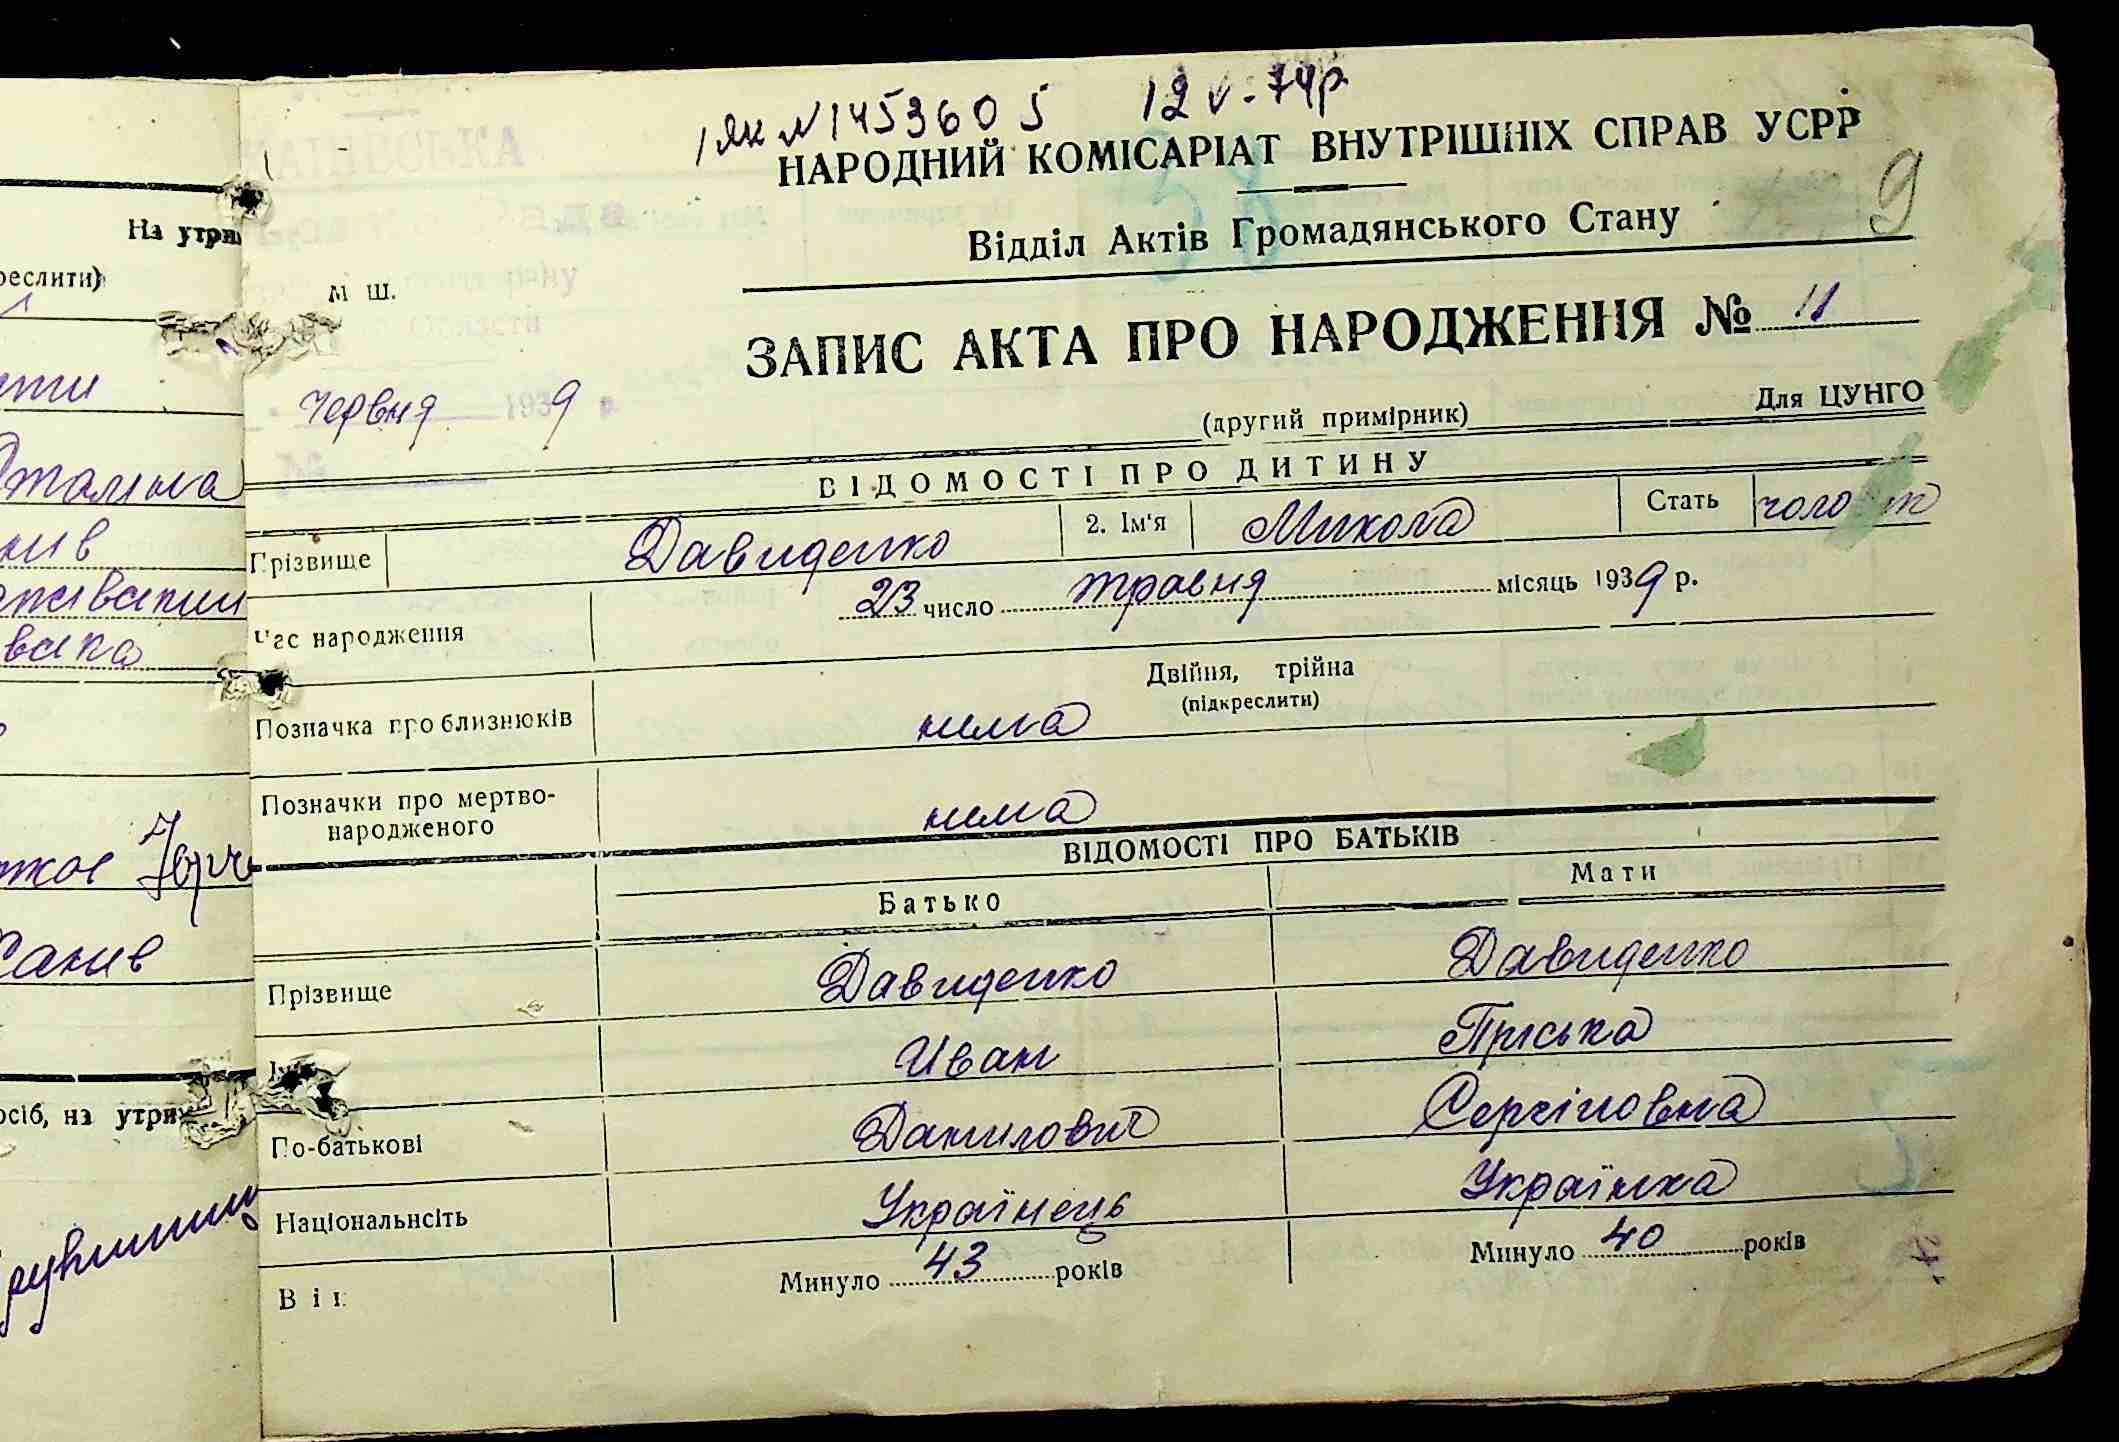 І ЯК № 1453605 12 V-74р
НАРОДНИЙ КОМІСАРІАТ ВНУТРІШНІХ СПРАВ УСРР
9
Відділ Актів Громадянського Стану
На утри
реслити)
М Ш.
ЗАПИС АКТА ПРО НАРОДЖЕННЯ № 11
червня 1939 р.
(другий примірник)
Для ЦУНГО
ВІДОМОСТІ ПРО ДИТИНУ
Прізвище Давиденко 2. Ім'я Микола Стать чоло
Час народження 23 число травня місяць 1939 р.
Двійня, трійна
(підкреслити)
Позначка про близнюків нема
Позначки про мертво-
народженого нема
ВІДОМОСТІ ПРО БАТЬКІВ
Батько Мати
Прізвище Давиденко Давиденко
Иван Пріська
осіб, на утри
По-батькові Данилович Сергіiовна
Національнсіть Українець Українка
Вік Минуло 43 років Минуло 40 років